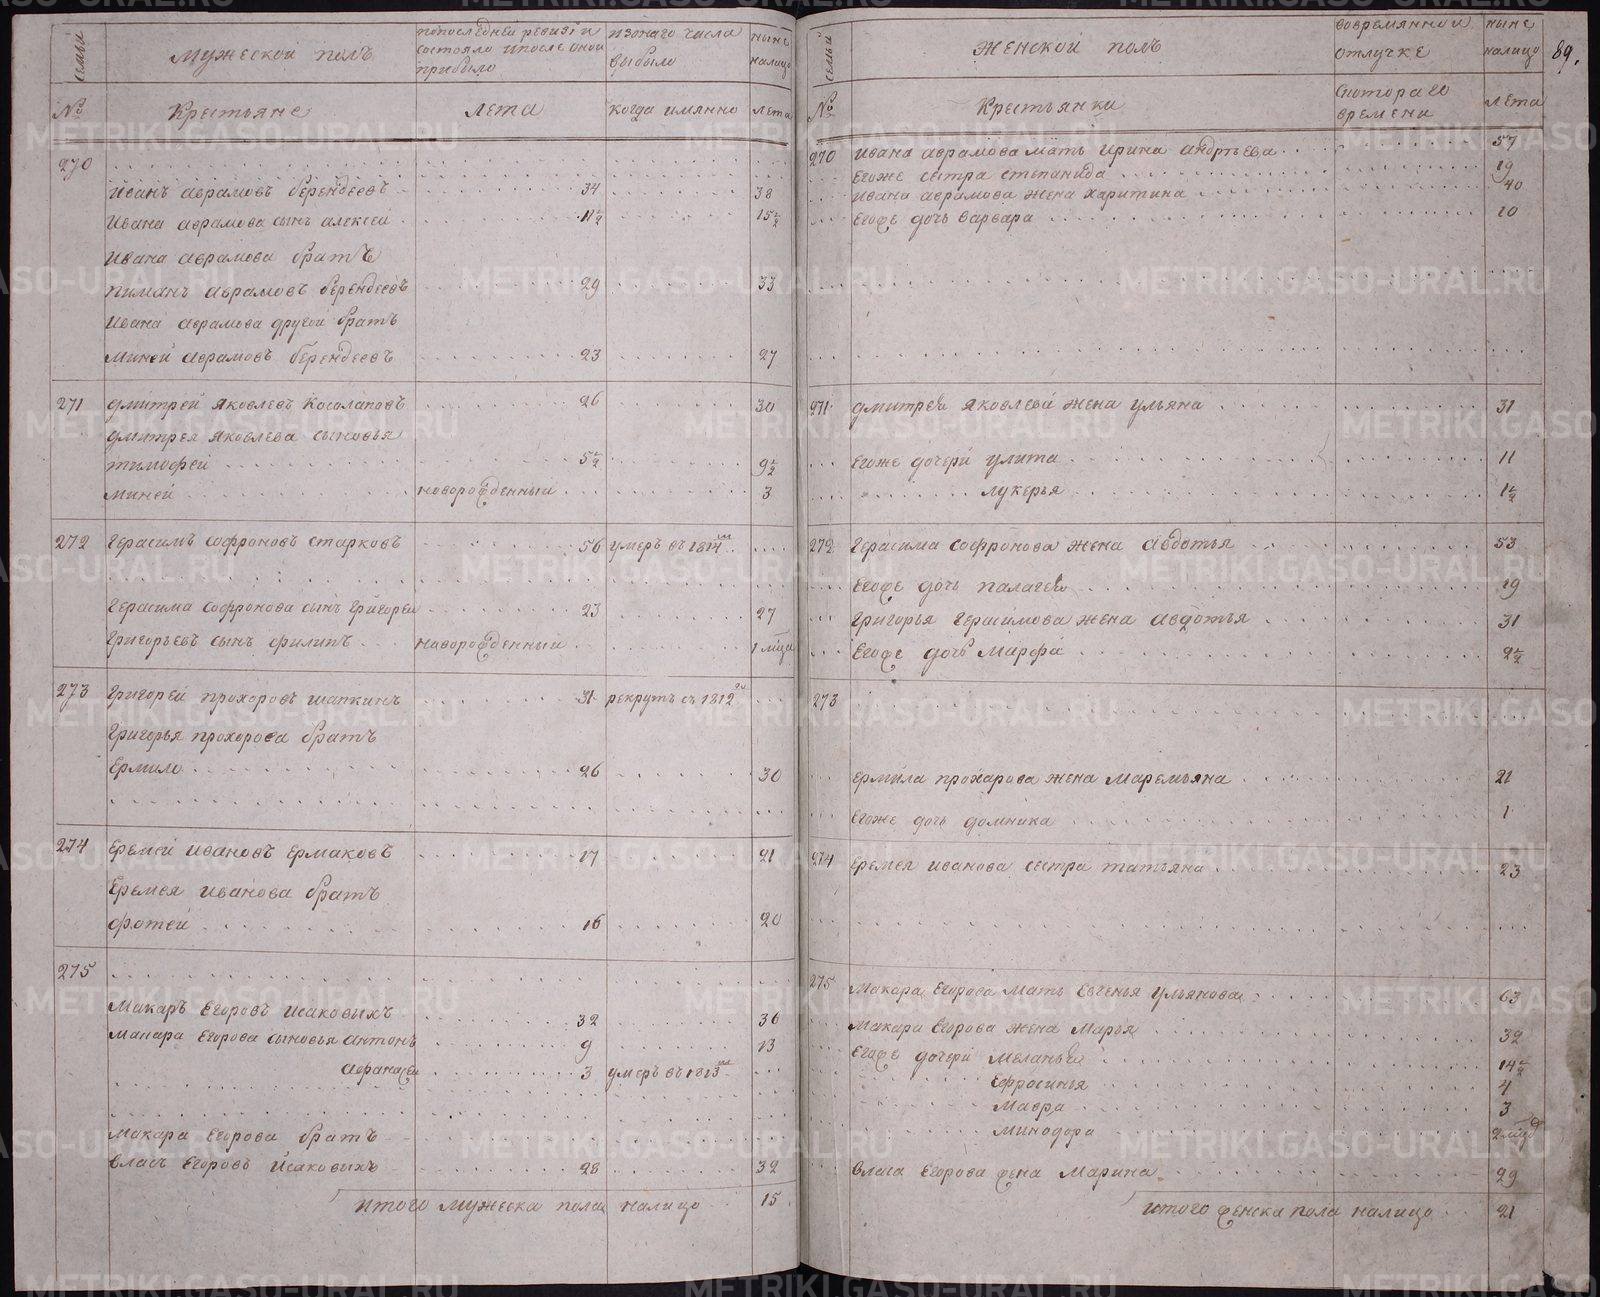 семьи
Мужеской полъ
попоследней ревизiи состояло ипосле оной прибыло
изонаго числа выбыло
ныне налицо
№
Крестьяне
лета
когда имянно
лета
270
Иванъ аврамовъ берендеевъ 34 38
Ивана аврамова сынъ алексей 11½ 15½
Ивана аврамова братъ
пиманъ аврамовъ берендеевъ 29 33
Ивана аврамова другой братъ
миней аврамовъ берендеевъ 23 27
271 дмитрей яковлевъ Косолаповъ 26 30
дмитрея яковлева сыновья
тимофей 5½ 9½
миней новорожденный 3
272 Герасимъ софроновъ старковъ 56 умеръ въ 1814м
Герасима софронова сынъ григорей 23 27
Григорьевъ сынъ филипъ новорожденный 1 мца
273 Григорей прохоровъ шапкинъ 31 рекрутъ съ 1812го
Григорья прохорова братъ
Ермило 26 30
274 Еремей ивановъ Ермаковъ 17 21
Еремея иванова братъ
фотей 16 20
275
Макаръ Егоровъ исаковыхъ 32 36
макара Егорова сыновья антонъ 9 13
афанасей 3 умеръ въ 1813м
макара Егорова братъ
власъ Егоровъ исаковыхъ 28 32
итого мужеска пола налицо 15
семьи
Женской полъ
вовремянной отлучке
ныне налицо
89.
№
Крестьянки
скотораго времени
лета
270 ивана аврамова мать ирина андреева 57
Егоже сестра степанида 19
ивана аврамова жена харитина 40
Егоже дочь варвара 10
271 дмитрея яковлева жена ульяна 31
Егоже дочери улита 11
лукерья 1½
272 Герасима софронова жена авдотья 53
Егоже дочь палагея 19
Григорья Герасимова жена авдотья 31
Егоже дочь марфа 2½
273
Ермила прохарова жена маремьяна 21
Егоже дочь домника 1
274 Еремея иванова сестра татьяна 23
275 Макара Егорова мать Евгенья ульянова 63
макара Егорова жена марья 32
Егоже дочери меланья 14½
Ефросинья 4
мавра 3
минодора 2 мцов
власа Егорова жена марина 29
итого женска пола налицо 21
METRIKI.GASO-URAL.RU